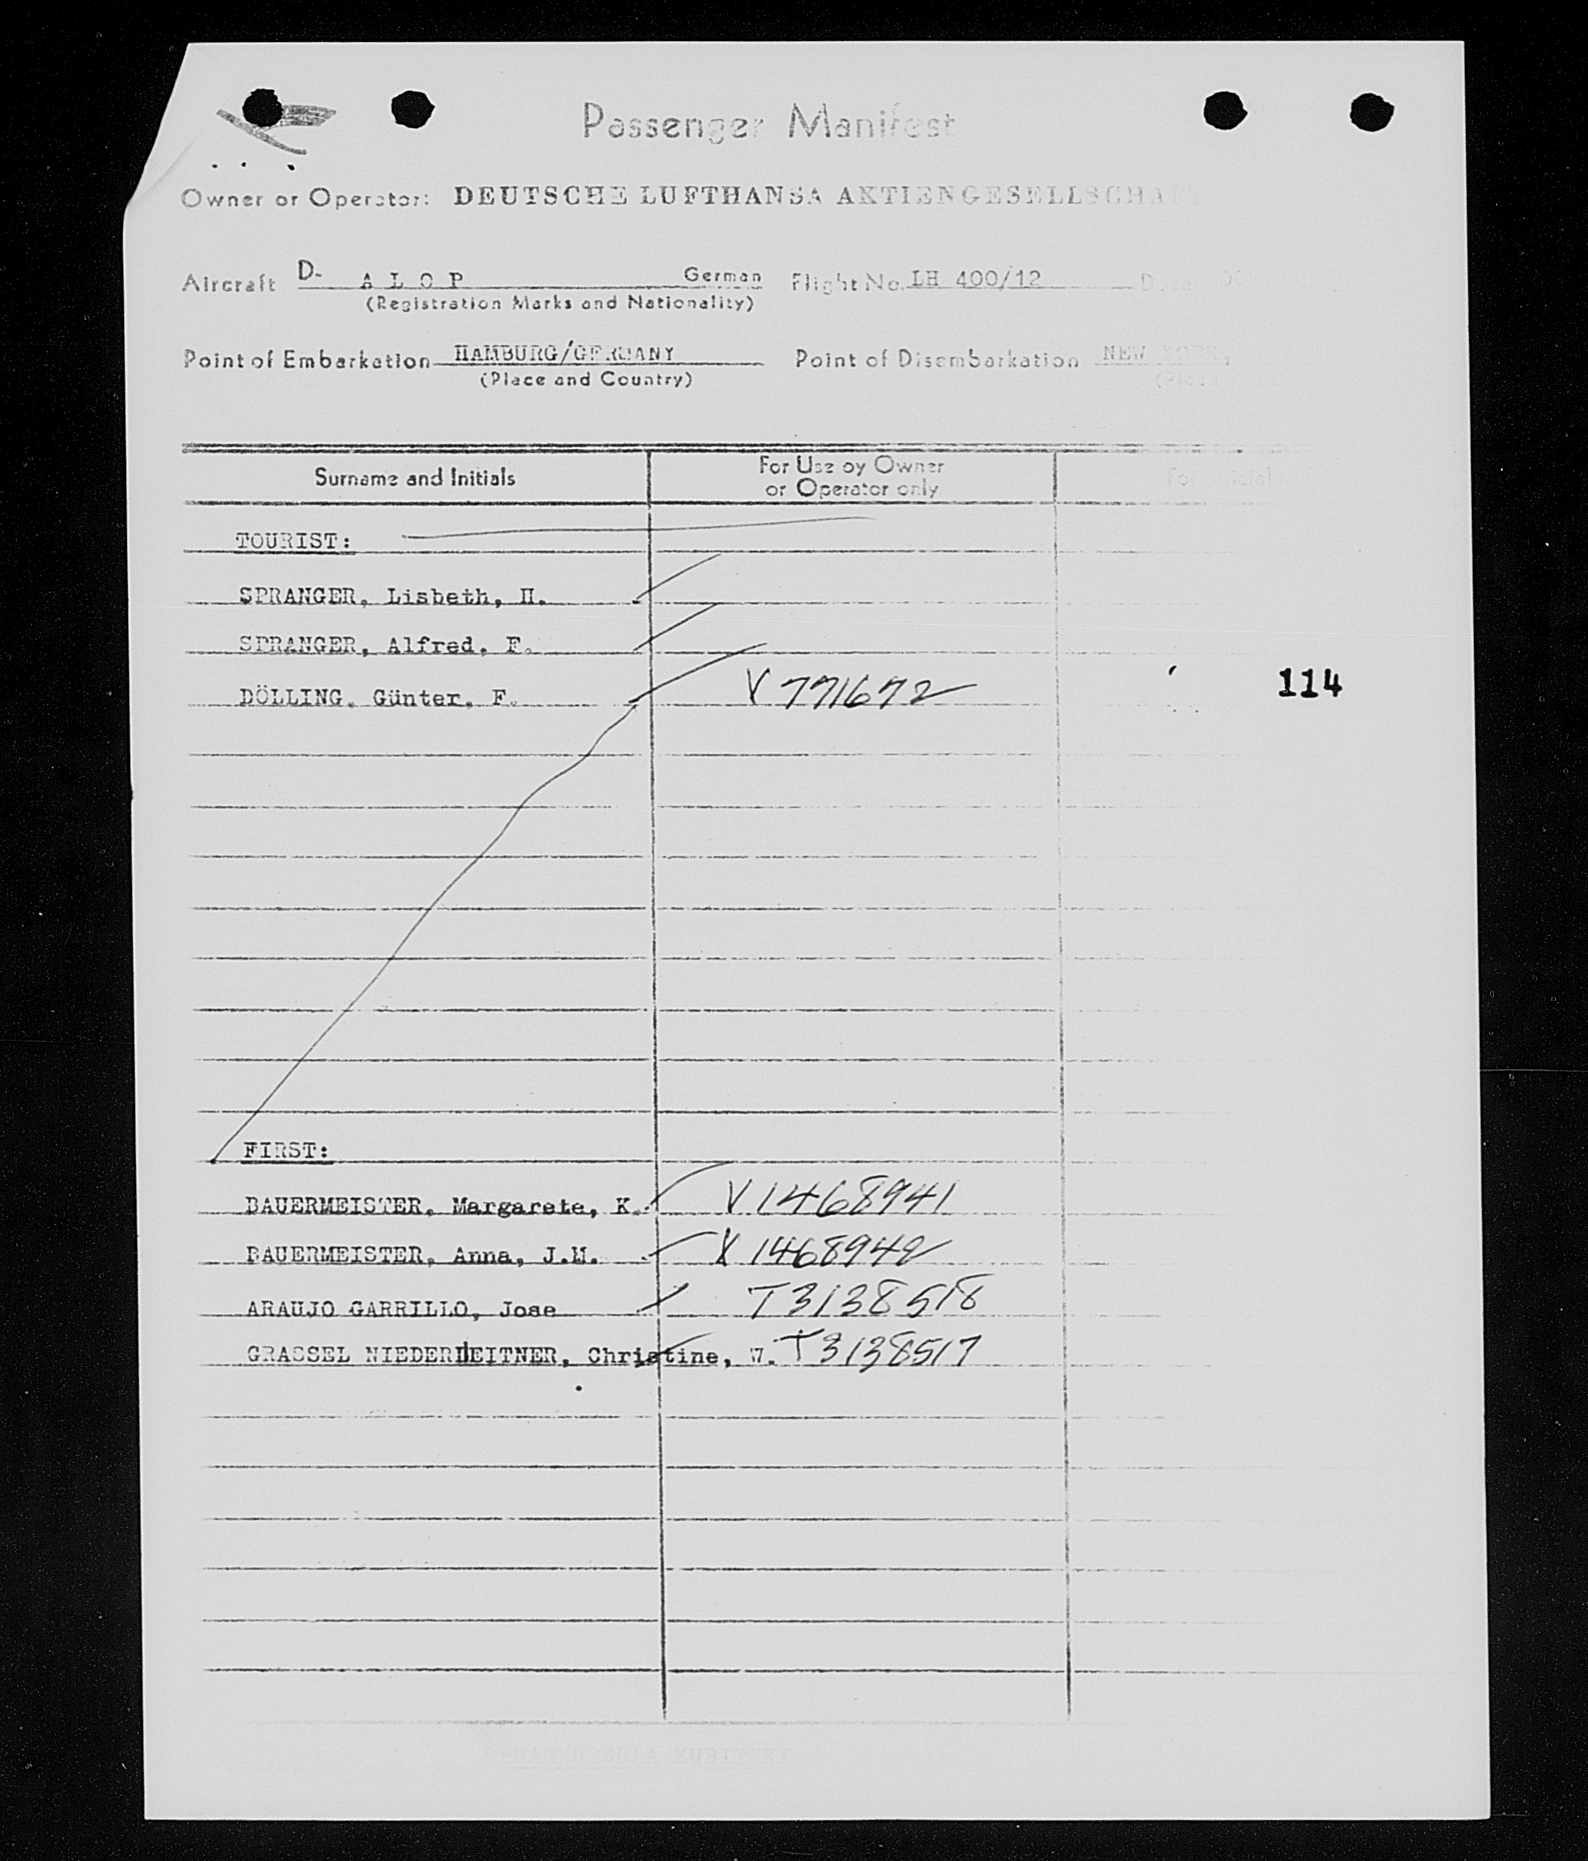 Passenger Manifest
Owner or Operator: DEUTSCHE LUFTHANSA AKTIENGESELLSCHAFT
Aircraft D- A L O P German Flight No. LH 400/12
(Registration Marks and Nationality)
Point of Embarkation HAMBURG/GERMANY Point of Disembarkation NEW YORK,
(Place and Country)
Surname and Initials For Use by Owner or Operator only For Official
TOURIST:
SPRANGER, Lisbeth, H.
SPRANGER, Alfred, F.
DÖLLING, Günter, F. V 771672 114
FIRST:
BAUERMEISTER, Margarete, K. V 1468941
BAUERMEISTER, Anna, J.M. V 1468942
ARAUJO GARRILLO, Jose T 3138518
GRASSEL NIEDERLEITNER, Christine, W. T 3138517